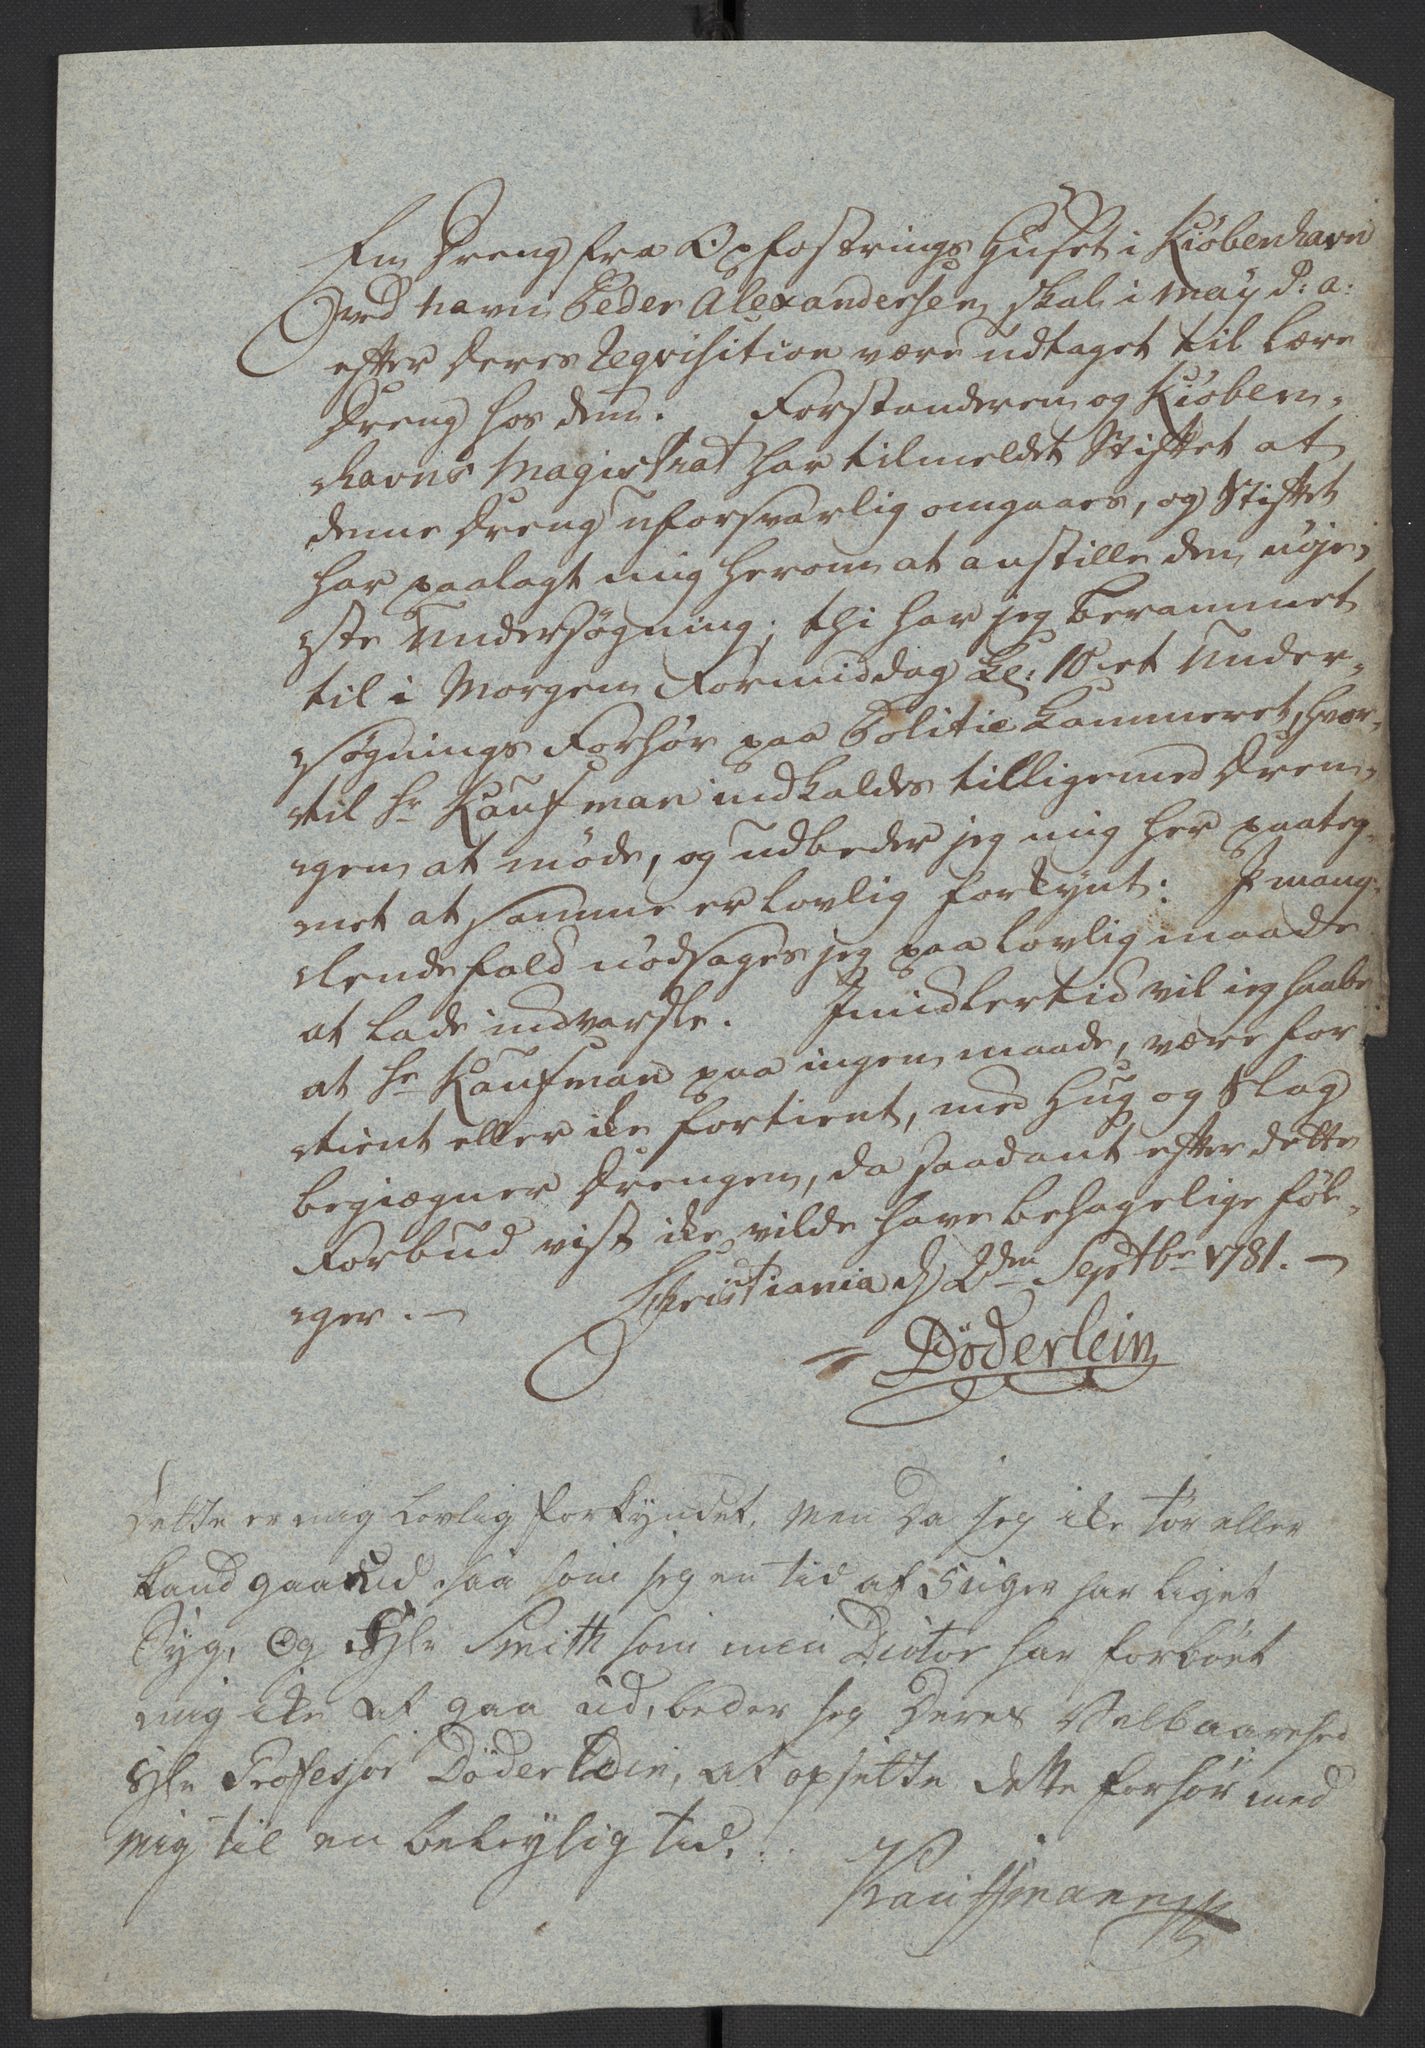 En Dreng fra Opfostrings Huset i Kiöbenhavn
ved navn Peder Alexandersen skal i may d: a:
efter Deres Reqvisition være udtaget til Lære
Dreng hos dem. Forstanderen og Kiöben-
havns Magistrat har tilmeldt Stiftet at
denne Dreng uforsvarlig omgaaes, og Stiftet
har paalagt mig herom at anstille den nöje-
ste Undersögning; thi har jeg berammet
til i Morgen Formiddag Kl: 10 et Under-
sögnings Forhör paa Politie Kammeret, hvor-
til Hr Kaufman indkaldes tilligemed Dren-
gen at möde, og udbeder jeg mig her paateg-
net at samme er lovlig forkynt: I mang-
lende fald nödsages jeg paa lovlig maade
at lade indvarsle. Imidlertid vil jeg haabe
at Hr Kaufman paa ingen maade, være for
tient eller ike fortient, med Hug og Slag
begiægner Drengen, da saadant efter dette
Forbud vist ike vilde have behagelige föl-
ger. — Christiania d 2den Septbr 1781. —
Döderlein
Dette er mig Lovlig forkyndet, men Da jeg ike tör eller
kand gaa ud saa som jeg en tid af 5 uger har liget
Syg, Og Hr Smith som min Docter har forböet
mig ike at gaa ud, beder jeg Deres Velbaarehed
Hr Professor Döderlein, at opsette dette forhör med
mig til en beleylig tid.
Kauffmann